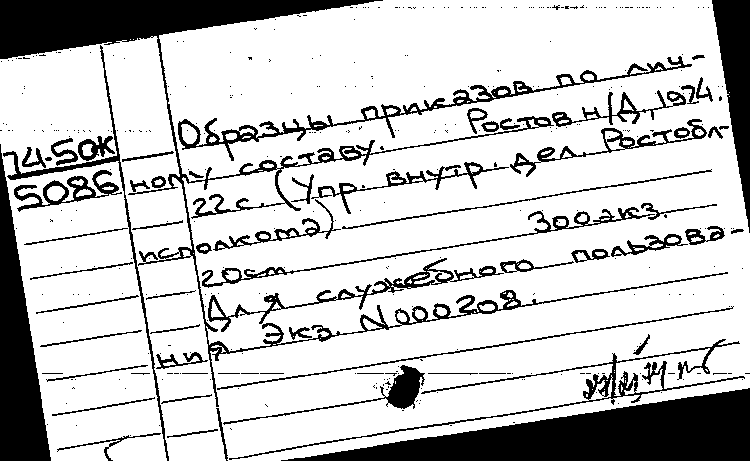 74-50К
5086
Образцы приказов по лич-
ному составу. Ростов н/Д, 1974.
22 с. (Упр. внутр. дел. Ростобл-
исполкома)
20см 300экз.
Для служебного пользова-
ния. Экз. N000208.